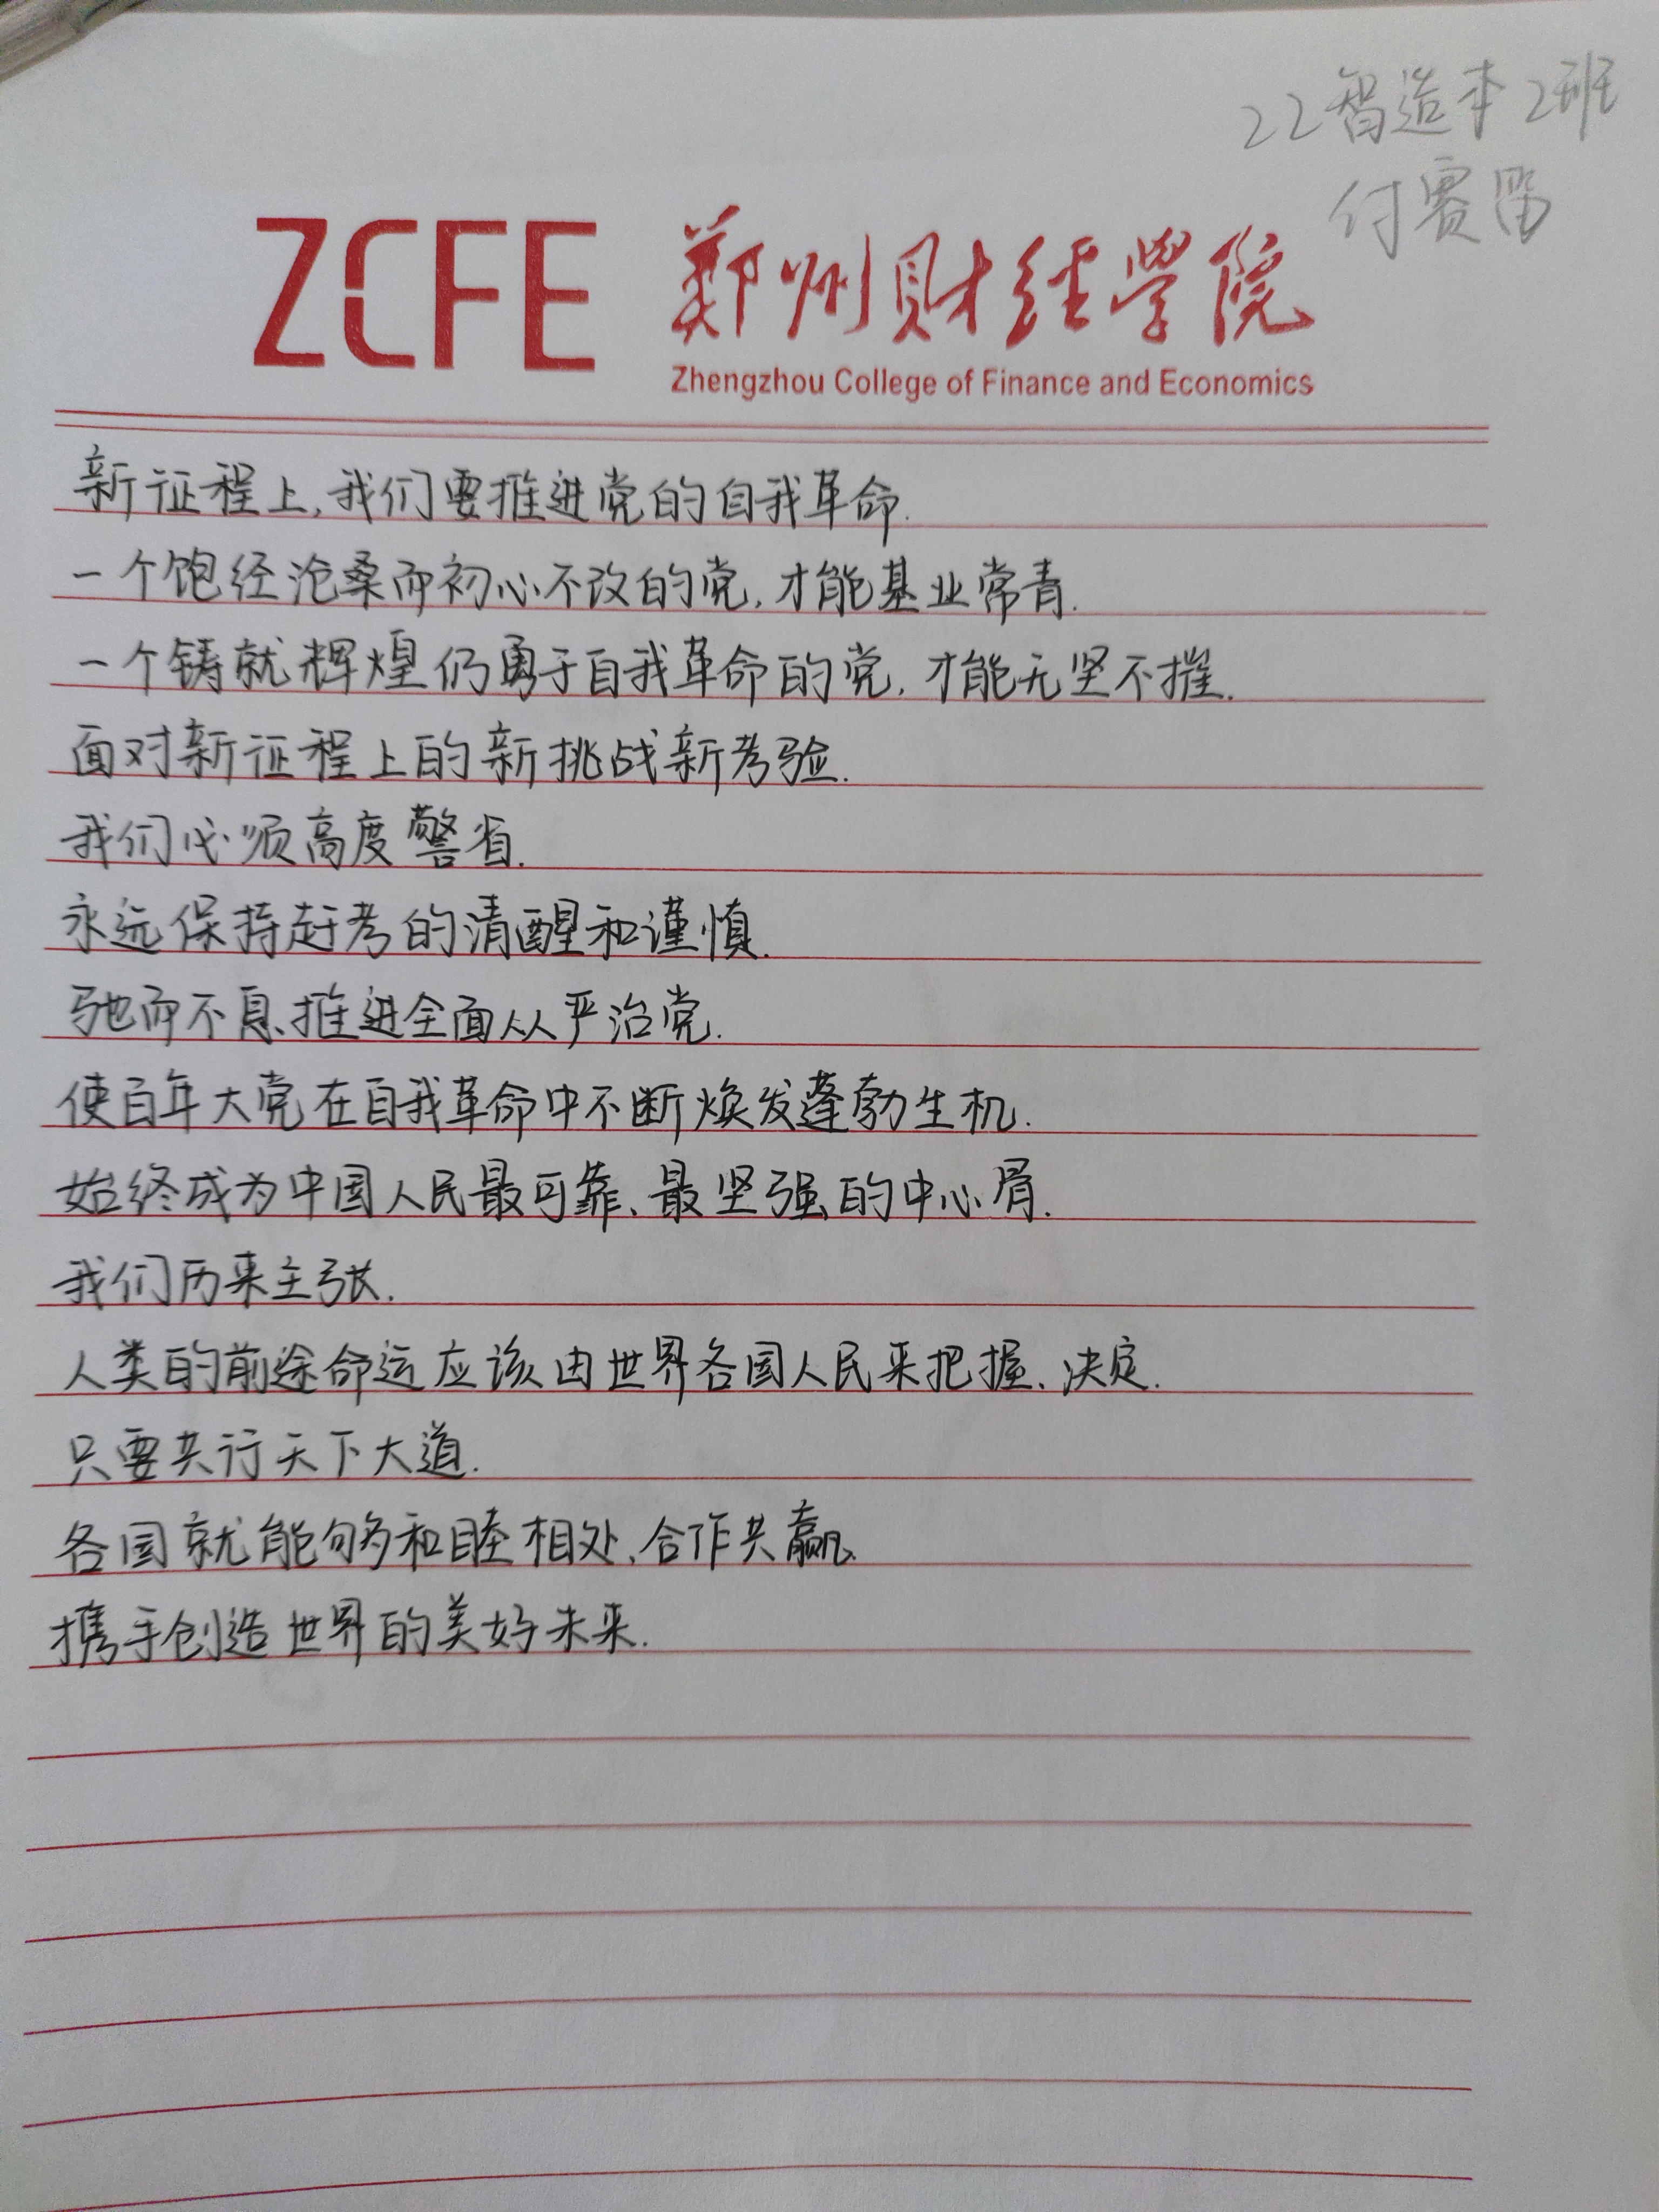 22智造本2班
付赛
ZCFE 郑州财经学院
Zhengzhou College of Finance and Economics
新征程上,我们要推进党的自我革命.
一个饱经沧桑而初心不改的党,才能基业常青.
一个铸就辉煌仍勇于自我革命的党,才能无坚不摧.
面对新征程上的新挑战新考验.
我们必须高度警省.
永远保持赶考的清醒和谨慎.
驰而不息、推进全面从严治党.
使百年大党在自我革命中不断焕发蓬勃生机.
始终成为中国人民最可靠、最坚强的中心骨.
我们历来主张.
人类的前途命运应该由世界各国人民来把握、决定.
只要共行天下大道.
各国就能够和睦相处,合作共赢.
携手创造世界的美好未来.